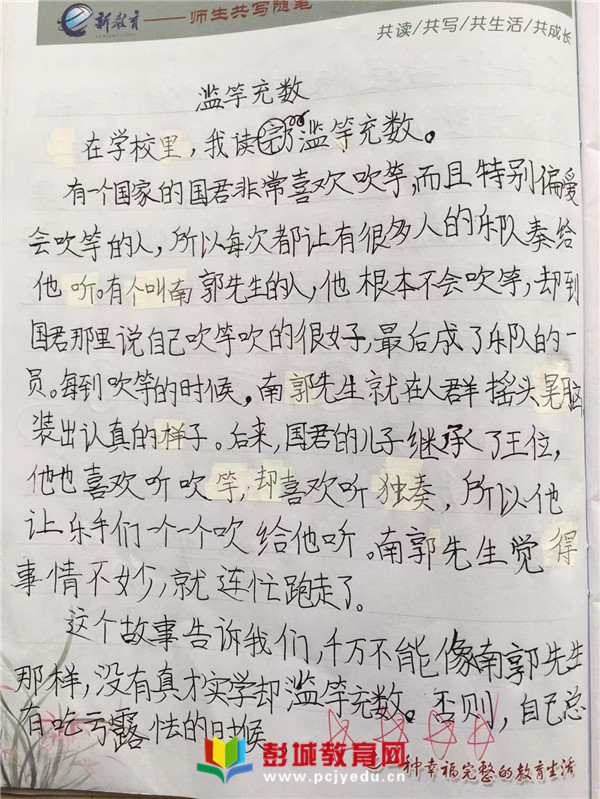 新教育——师生共写随笔
共读/共写/共生活/共成长
滥竽充数
在学校里，我读完了滥竽充数。
有一个国家的国君非常喜欢吹竽，而且特别偏爱
会吹竽的人，所以每次都让有很多人的乐队奏给
他听。有个叫南郭先生的人，他根本不会吹竽，却到
国君那里说自己吹竽吹的很好，最后成了乐队的一
员。每到吹竽的时候，南郭先生就在人群摇头晃脑
装出认真的样子。后来，国君的儿子继承了王位，
他也喜欢听吹竽，却喜欢听独奏，所以他
让乐手们一个一个吹给他听。南郭先生觉得
事情不妙，就连忙跑走了。
这个故事告诉我们，千万不能像南郭先生
那样，没有真才实学却滥竽充数。否则，自己总
有吃亏露怯的时候
彭城教育网
www.pcjyedu.cn
种幸福完整的教育生活